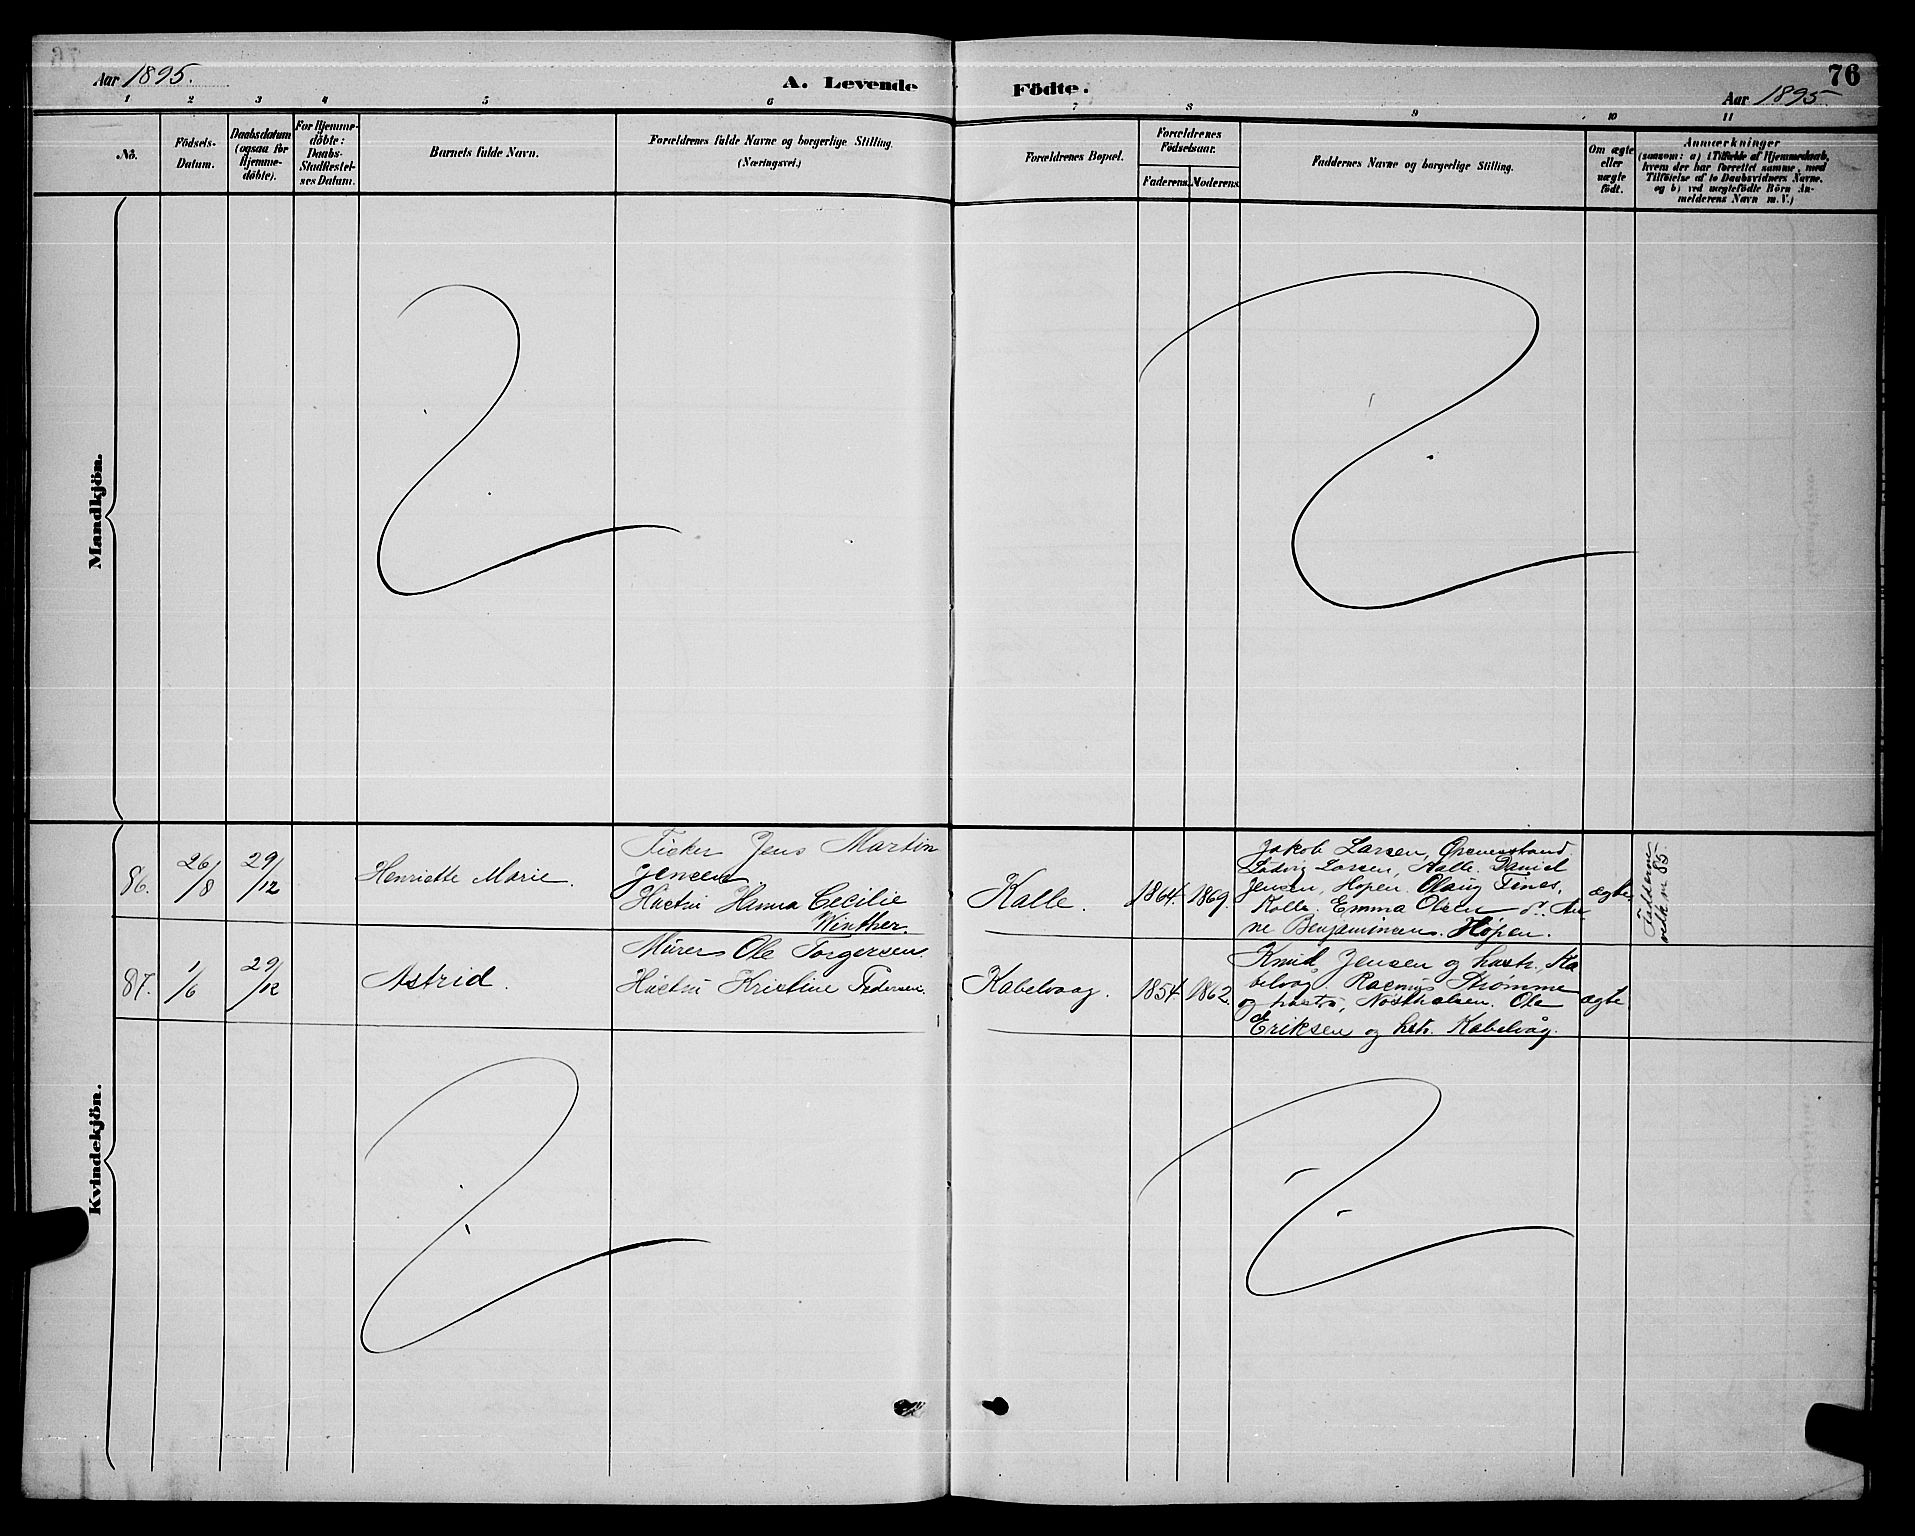 Aar 1895.
A. Levende
Födte.
76
Aar 1895
1 2 3 4 5 6 7 8 9 10 11
No.
Födsels-
Datum.
Daabsdatum
(ogsaa for
Hjemme-
döbte).
For Hjemme-
döbte:
Daabs-
Stadfæstel-
ses Datum.
Barnets fulde Navn.
Forældrenes fulde Navne og borgerlige Stilling.
(Næringsvei.)
Forældrenes Bopæl.
Forældrenes
Födselsaar.
Faderens. Moderens.
Faddernes Navne og borgerlige Stilling.
Om ægte
eller
uægte
födt.
Anmærkninger
(saasom: a) i Tilfælde af Hjemmedaab,
hvem der har forrettet samme, med
Tilföielse af to Daabsvidners Navne,
og b) ved uægtefödte Börn An-
melderens Navn m. V.)
Mandkjön.
Kvindekjön.
86.
26/8
29/12
Henriette Marie.
Fisker Jens Martin
Jensen
Hustru Hanna Cecilie
Winther.
Kalle.
1864. 1869.
Jakob Larsen,
Ludvig Larsen, Kalle. Daniel
Jensen, Hopen. Olaug Fines,
Kalle. Emma Olsen do. An-
ne Benjaminsen. Hopen.
ægte
Fadderne
ved no 85.
87.
1/6
29/12
Astrid.
Murer Ole Torgersen
Hustru Kristine Pedersen.
Kabelvaag.
1854. 1862.
Knud Jensen og hustr. Ka-
belvåg. Rasmus Strømme
og hustr., Ole
Eriksen og hstr. Kabelvåg.
ægte